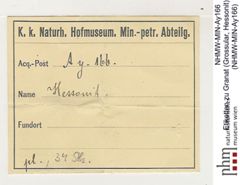 K. k. Naturh. Hofmuseum. Min.-petr. Abteilg.
Acq.-Post Ay. 166.
Name Hessonit.
Fundort
NHMW-MIN-Ay166
Etikett zu Granat (Grossular, Hessonit)
(NHMW-MIN-Ay166)
nhm
naturhistorisches
museum wien